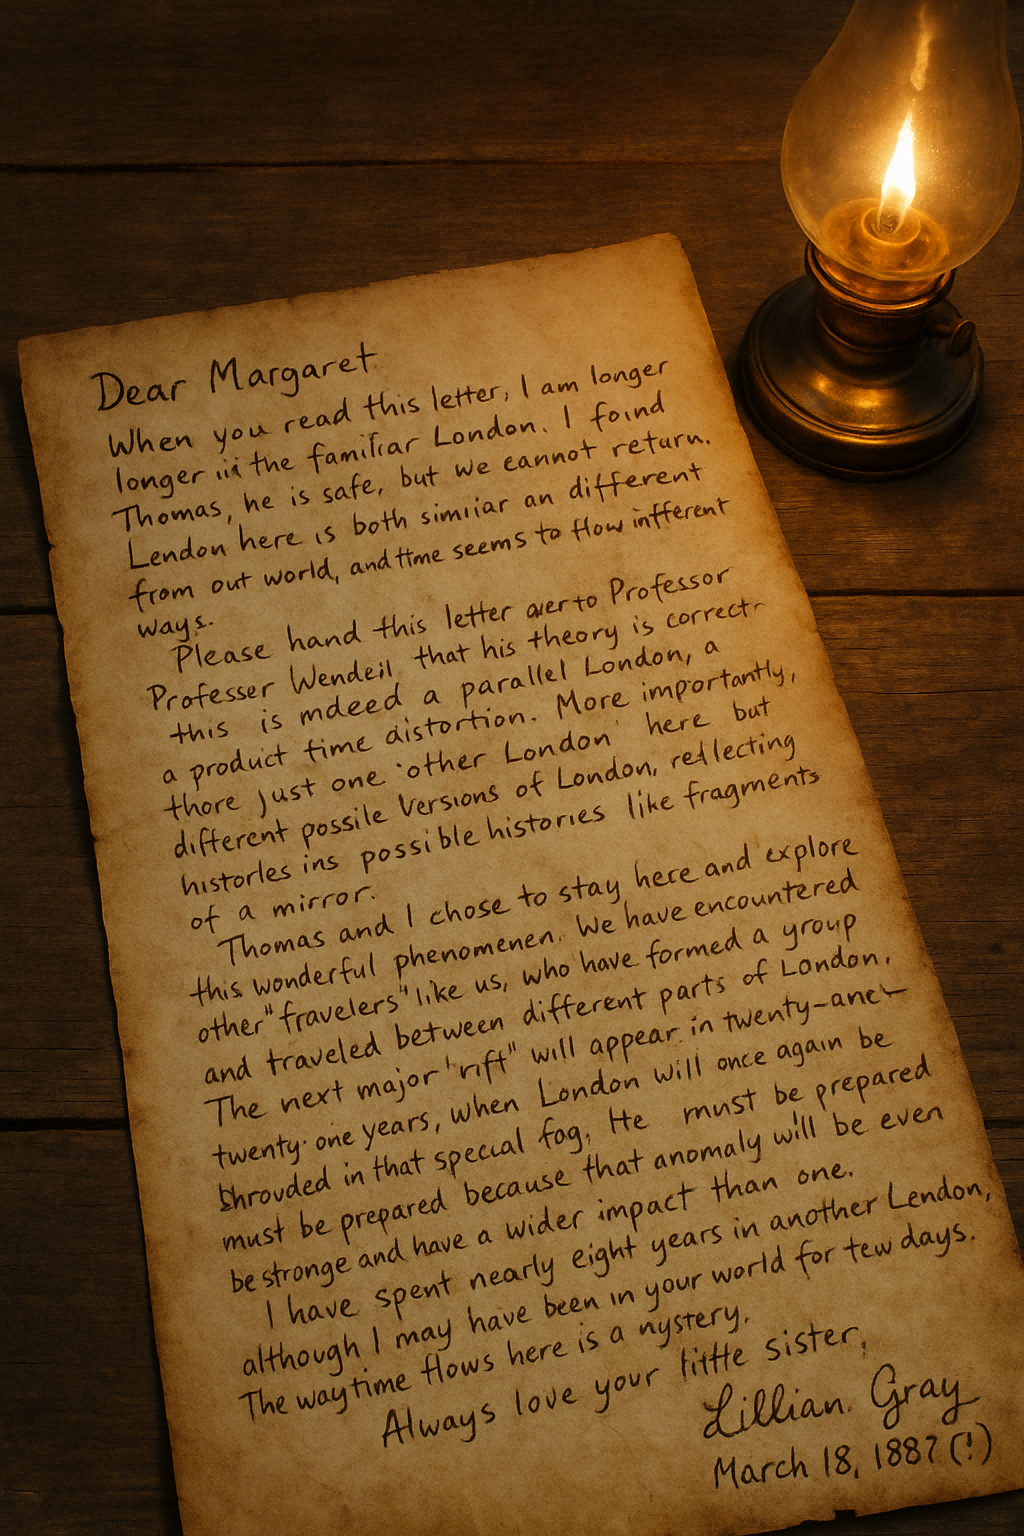 Dear Margaret
When you read this letter, I am longer
longer in the familiar London. I found
Thomas, he is safe, but we cannot return.
Lendon here is both simiiar an different
from out world, and time seems to flow infferent
ways.
Please hand this letter over to Professor
Professer Wendeil, that his theory is correct-
this is mdeed a parallel London, a
a product time distortion. More importantly,
thore just one 'other London' here but
different possile Versions of London, reflecting
historles ins possible histories like fragments
of a mirror.
Thomas and I chose to stay here and explore
this wonderful phenomenen. We have encountered
other "fravelers" like us, who have formed a group
and traveled between different parts of London.
The next major 'rift" will appear in twenty-ane-
twenty-one years, when London will once again be
shrouded in that special fog, He must be prepared
must be prepared because that anomaly will be even
be stronge and have a wider impact than one.
I have spent nearly eight years in another Lendon,
although I may have been in your world for tew days.
The way time flows here is a nystery.
Always love your little sister,
Lillian. Gray
March 18, 1887 (!)